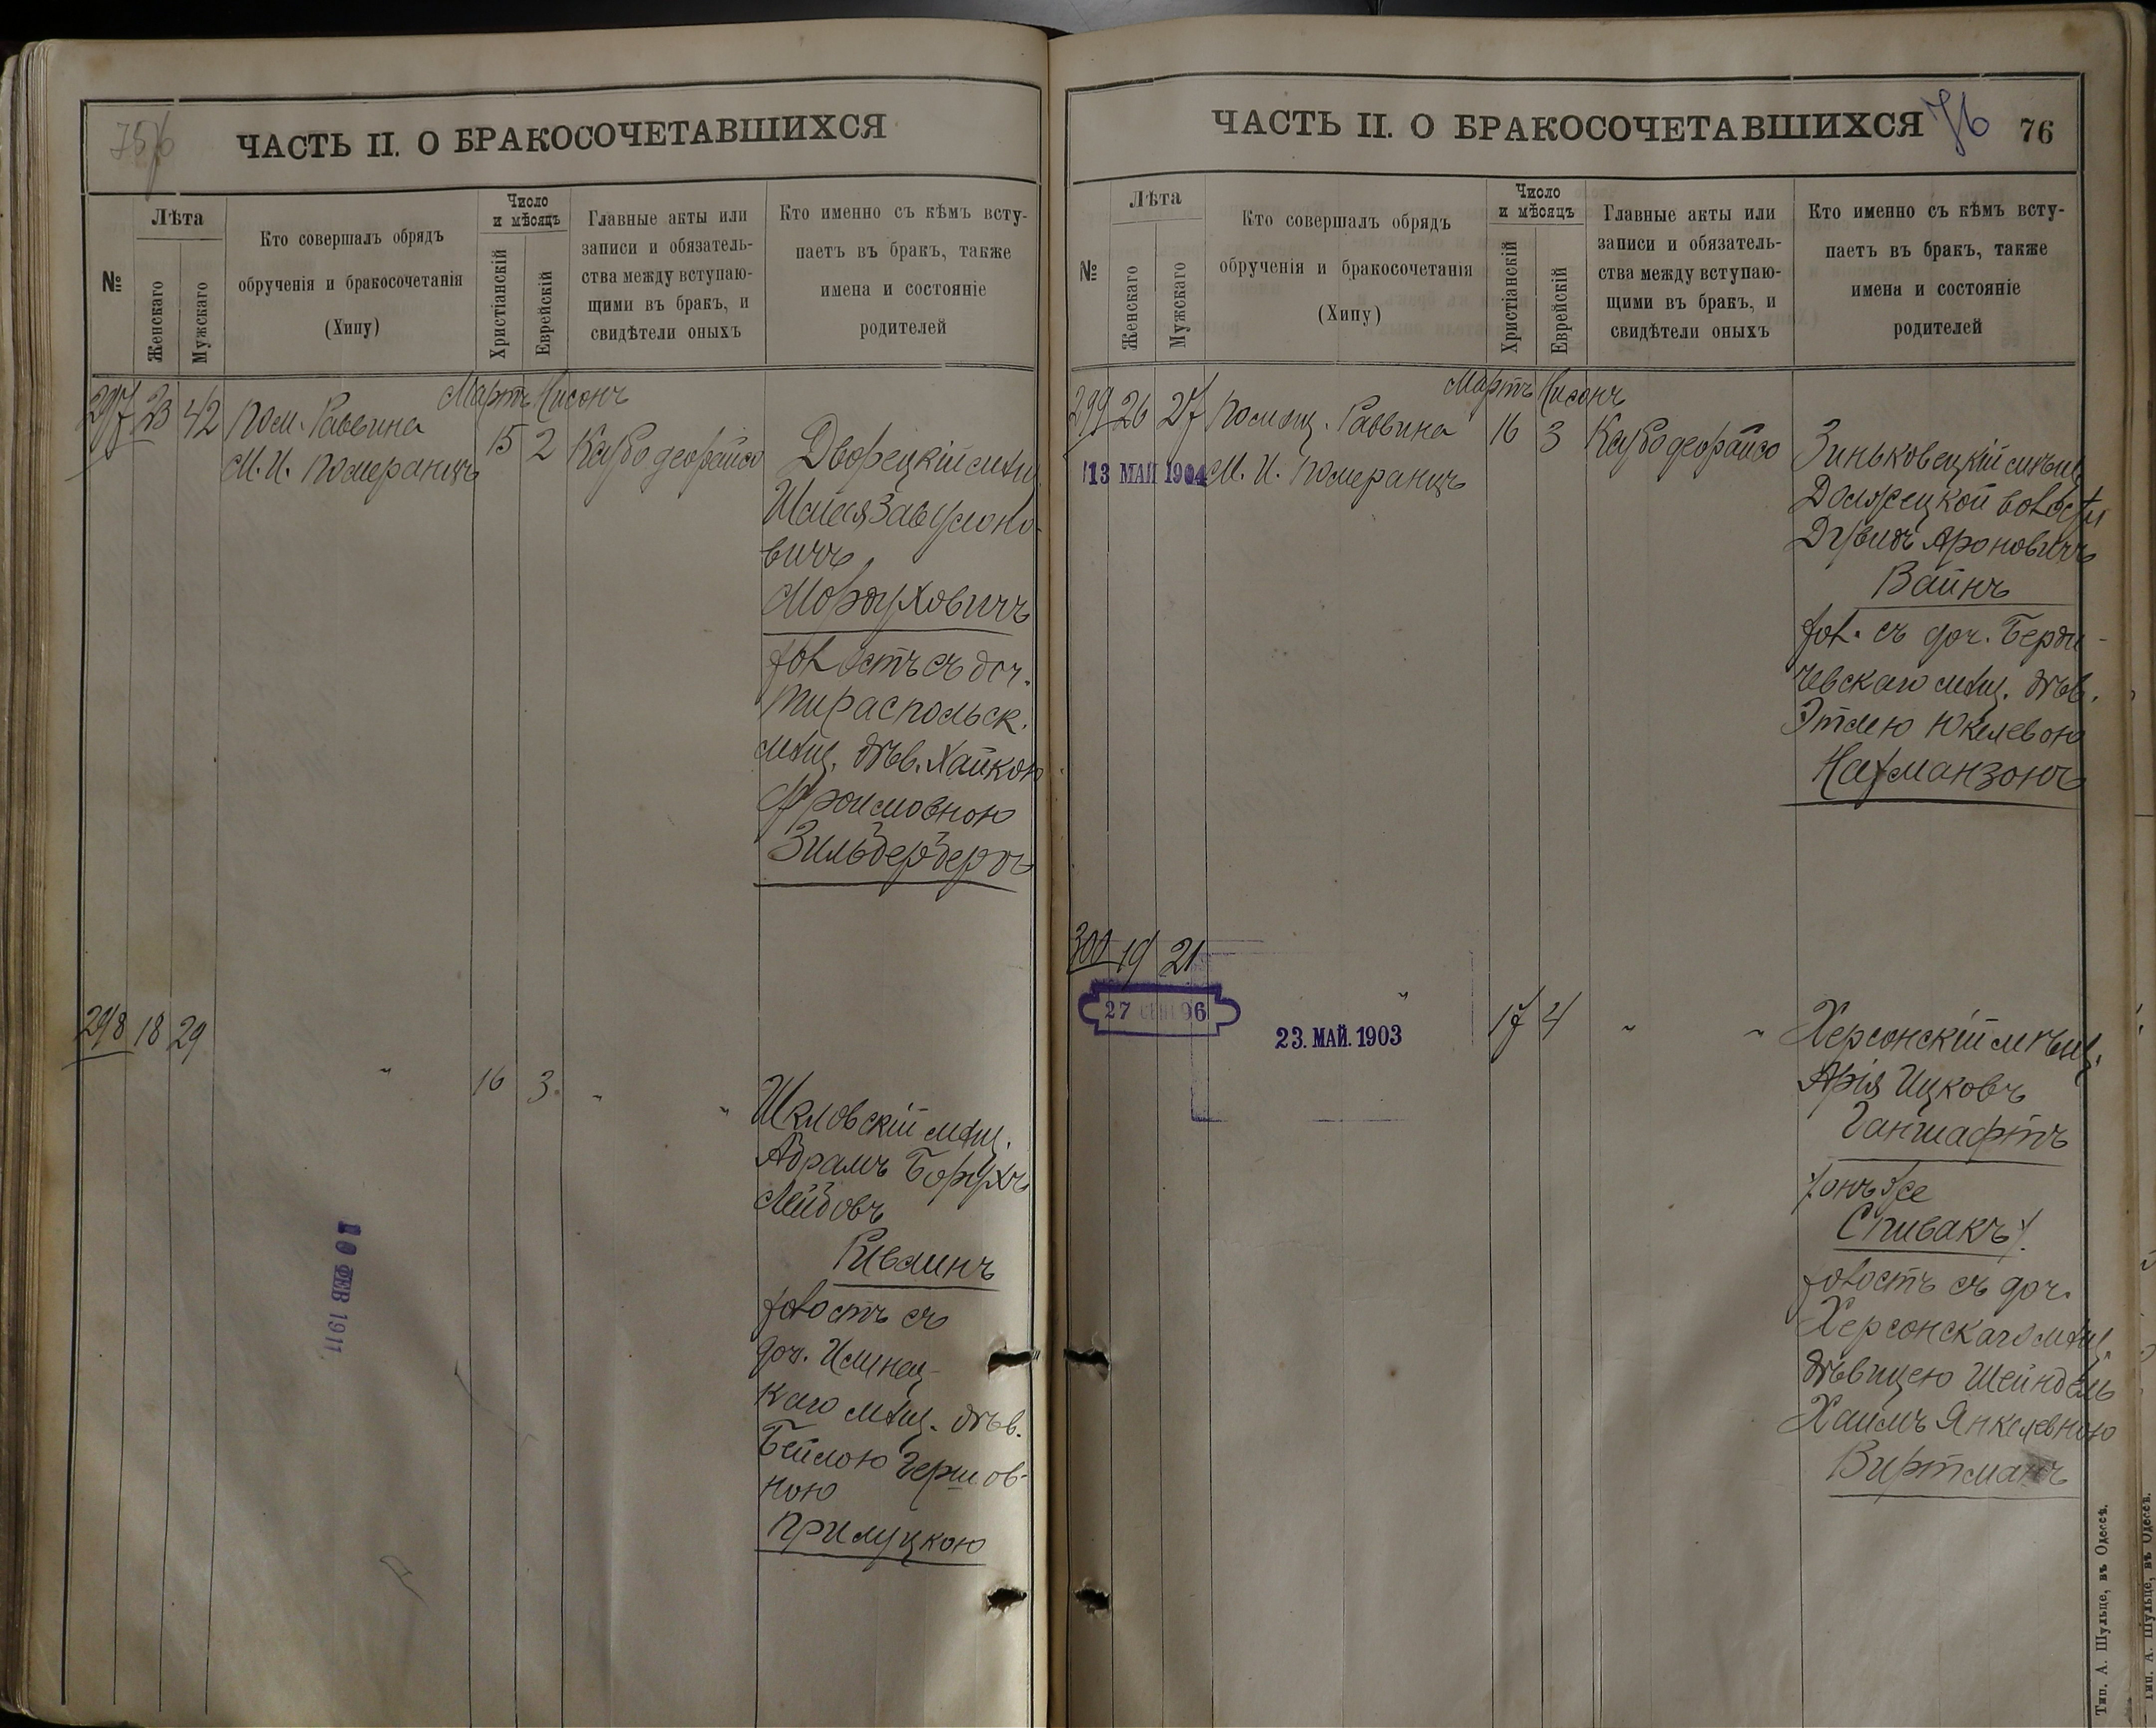 75/6
ЧАСТЬ II. О БРАКОСОЧЕТАВШИХСЯ
№
Лѣта
Женскаго
Мужскаго
Кто совершалъ обрядъ
обрученія и бракосочетанія
(Хипу)
Число
и мѣсяцъ
Христіанскій
Еврейскій
Главные акты или
записи и обязатель-
ства между вступаю-
щими въ бракъ, и
свидѣтели оныхъ
Кто именно съ кѣмъ всту-
паетъ въ бракъ, также
имена и состояніе
родителей
Мартъ Нисонъ
297 23 42 Пом. Раввина
М. И. Померанцъ
15 2
Дворецкій мѣщ.
Шмая Завулоно-
вичъ
Мордуховичъ
холостъ съ доч.
Тираспольск.
мѣщ. дѣв. Хайкою
Фроимовною
Зильберберъ
298 18 29
" 16 3 " "
Шкловскій мѣщ.
Абрамъ Борухъ
Лейбовъ
Ривлинъ
холостъ съ
доч. Илинец-
каго мѣщ. дѣв.
Бейлою Герш ов-
ною
Прилуцкою
10 ФЕВ 1911
ЧАСТЬ II. О БРАКОСОЧЕТАВШИХСЯ
76
76
№
Лѣта
Женскаго
Мужскаго
Кто совершалъ обрядъ
обрученія и бракосочетанія
(Хипу)
Число
и мѣсяцъ
Христіанскій
Еврейскій
Главные акты или
записи и обязатель-
ства между вступаю-
щими въ бракъ, и
свидѣтели оныхъ
Кто именно съ кѣмъ всту-
паетъ въ бракъ, также
имена и состояніе
родителей
Мартъ Нисонъ
299 26 27 Помощ. Раввина
М. И. Померанцъ
13 МАЙ 1904
16 3
Зиньковецкій мѣщ.
Должецкой волости
Дувидъ Ароновичъ
Вайнъ
хол. съ доч. Берди-
чевскаго мѣщ. дѣв.
Этлею Юкелевою
Нахманзонъ
300 19 21
27 96
23. МАЙ. 1903
" 17 4 " "
Херсонскій мѣщ.
Арія Ицковъ
Ганшафтъ
/онъ же
Спивакъ/.
холостъ съ доч.
Херсонскаго мѣщ.
дѣвицею Шейндель
Хаимъ Янкелевною
Виртманъ
Тип. А. Шульце, въ Одессѣ.
Тип. А. Шульце, въ Одессѣ.